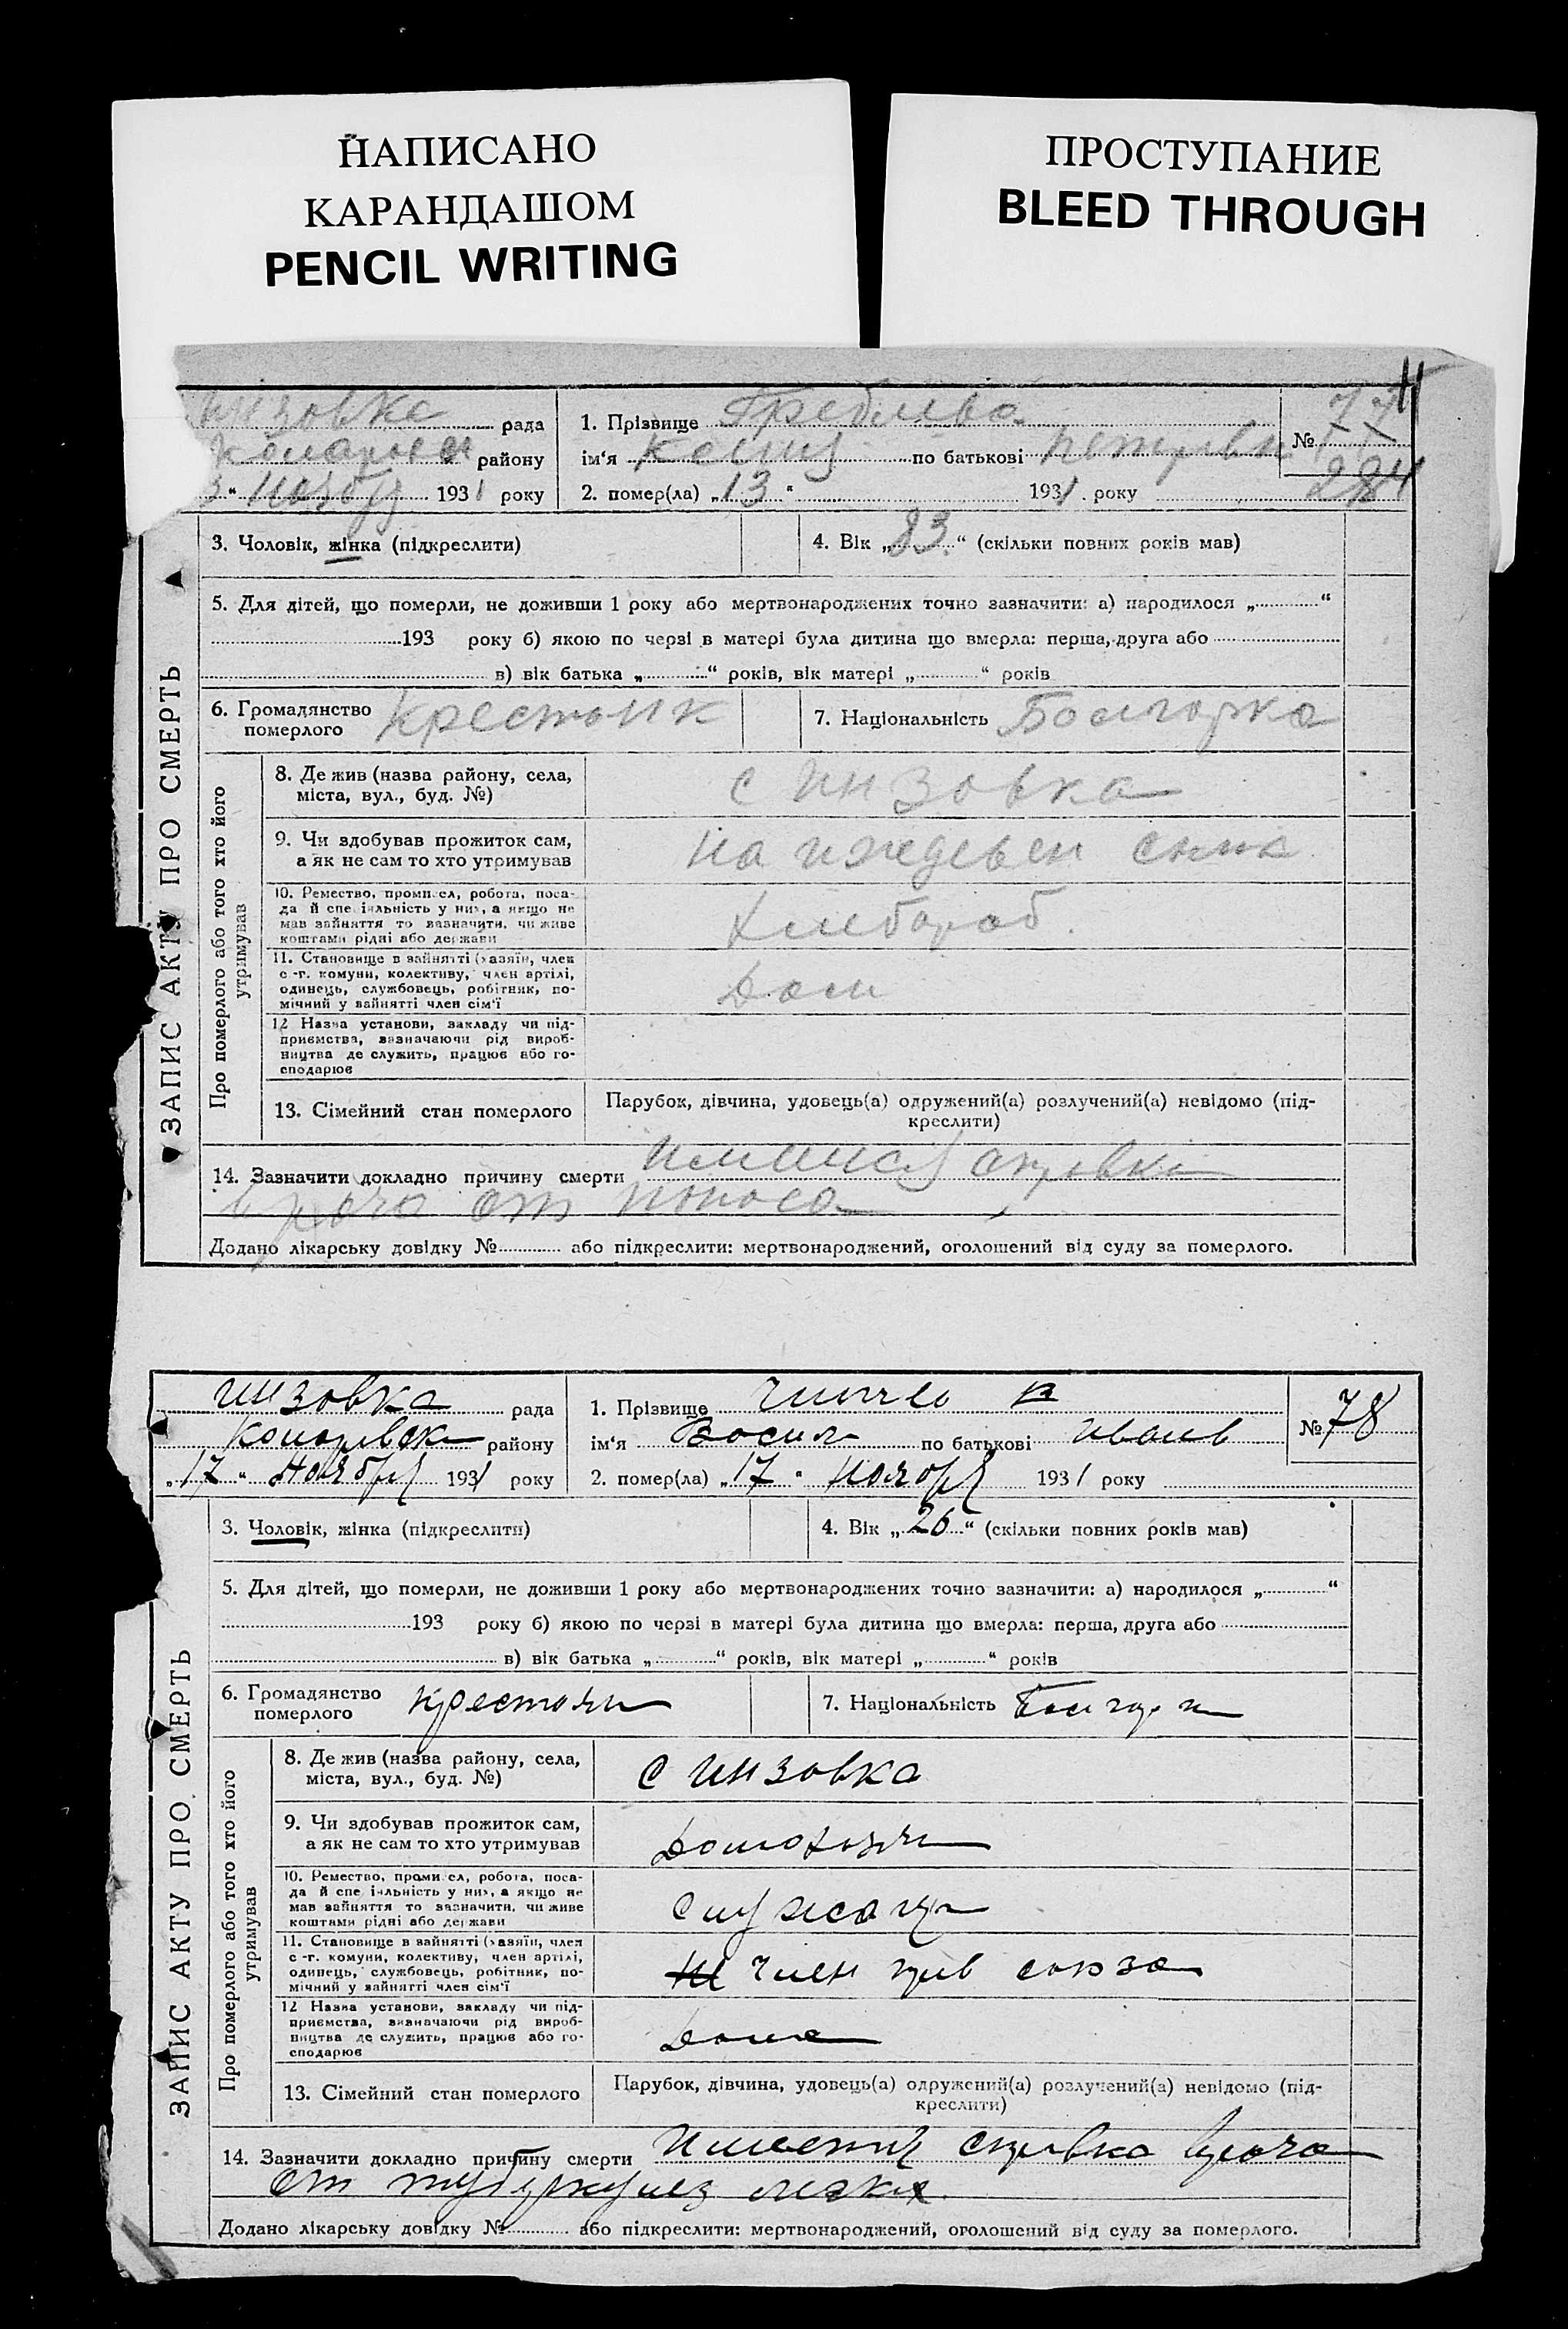 НАПИСАНО
КАРАНДАШОМ
PENCIL WRITING
ПРОСТУПАНИЕ
BLEED THROUGH
рада
району
1931 року
1. Прізвище
ім'я по батькові
2. помер(ла) „13" 1931 року
№ 77
284
ЗАПИС АКТУ ПРО СМЕРТЬ
3. Чоловік, жінка (підкреслити)
4. Вік „83" (скільки повних років мав)
5. Для дітей, що померли, не доживши 1 року або мертвонароджених точно зазначити: а) народилося „ "
193 року б) якою по черзі в матері була дитина що вмерла: перша, друга або
в) вік батька „ " років, вік матері „ " років
6. Громадянство
померлого
7. Національність Болгорка
Про померлого або того хто його
утримував
8. Де жив (назва району, села,
міста, вул., буд. №)
с Инзовка
9. Чи здобував прожиток сам,
а як не сам то хто утримував
на
10. Ремество, промисел, робота, поса-
да й спеціяльність у них, а якщо не
мав зайняття то зазначити, чи живе
коштами рідні або держави
Хлебороб
11. Становище в зайнятті (хазяїн, член
с.-г. комуни, колективу, член артілі,
одинець, службовець, робітник, по-
мічний у зайнятті член сім'ї
12 Назва установи, закладу чи під-
приємства, зазначаючи рід вироб-
ництва де служить, працює або го-
сподарює
13. Сімейний стан померлого
Парубок, дівчина, удовець(а) одружений(а) розлучений(а) невідомо (під-
креслити)
14. Зазначити докладно причину смерти
врача от поноса
Додано лікарську довідку № або підкреслити: мертвонароджений, оголошений від суду за померлого.
Инзовка рада
району
„17" Ноября 1931 року
1. Прізвище
ім'я Васил по батькові Иванов
2. помер(ла) „17" Ноября 1931 року
№ 78
ЗАПИС АКТУ ПРО СМЕРТЬ
3. Чоловік, жінка (підкреслити)
4. Вік „26" (скільки повних років мав)
5. Для дітей, що померли, не доживши 1 року або мертвонароджених точно зазначити: а) народилося „ "
193 року б) якою по черзі в матері була дитина що вмерла: перша, друга або
в) вік батька „ " років, вік матері „ " років
6. Громадянство
померлого
7. Національність
Про померлого або того хто його
утримував
8. Де жив (назва району, села,
міста, вул., буд. №)
с Инзовка
9. Чи здобував прожиток сам,
а як не сам то хто утримував
10. Ремество, промисел, робота, поса-
да й спеціяльність у них, а якщо не
мав зайняття то зазначити, чи живе
коштами рідні або держави
11. Становище в зайнятті (хазяїн, член
с.-г. комуни, колективу, член артілі,
одинець, службовець, робітник, по-
мічний у зайнятті член сім'ї
член союза
12 Назва установи, закладу чи під-
приємства, зазначаючи рід вироб-
ництва де служить, працює або го-
сподарює
13. Сімейний стан померлого
Парубок, дівчина, удовець(а) одружений(а) розлучений(а) невідомо (під-
креслити)
14. Зазначити докладно причину смерти справка врача
от туберкулез
Додано лікарську довідку № або підкреслити: мертвонароджений, оголошений від суду за померлого.